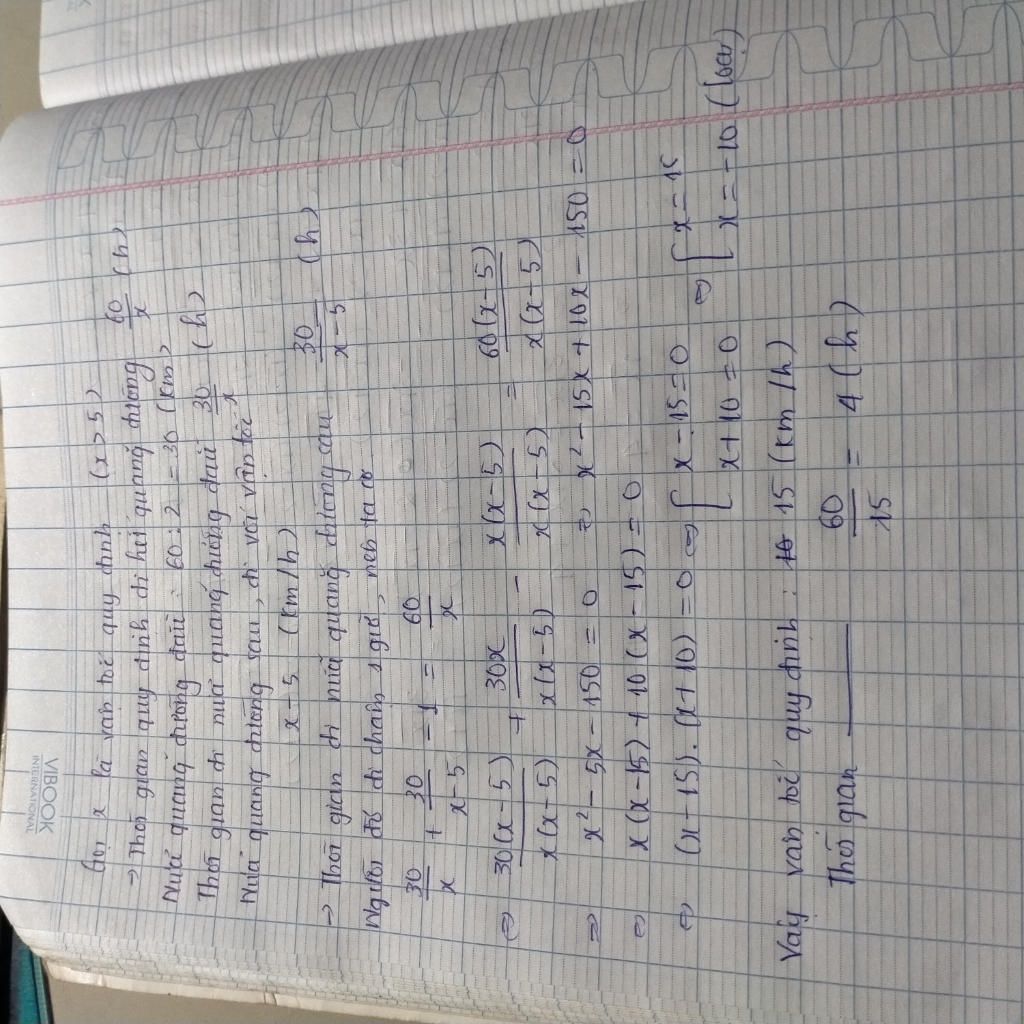 VIBOOK
INTERNATIONAL
Gọi x là vận tốc quy định (x > 5)
→ Thời gian quy định đi hết quãng đường 60/x (h)
Nửa quãng đường đầu : 60 : 2 = 30 (km)
Thời gian đi nửa quãng đường đầu 30/x (h)
Nửa quãng đường sau, đi với vận tốc
x - 5 (km/h)
→ Thời gian đi nửa quãng đường sau 30/(x - 5) (h)
Người đó đi chậm 1 giờ, nên ta có
30/x + 30/(x - 5) - 1 = 60/x
⇔ 30(x - 5)/x(x - 5) + 30x/x(x - 5) - x(x - 5)/x(x - 5) = 60(x - 5)/x(x - 5)
⇒ x² - 5x - 150 = 0 ⇔ x² - 15x + 10x - 150 = 0
⇔ x(x - 15) + 10(x - 15) = 0
⇔ (x - 15).(x + 10) = 0 ⇔ [ x - 15 = 0 ⇔ [ x = 15
x + 10 = 0 x = -10 (loại)
Vậy vận tốc quy định : 15 (km/h)
Thời gian ___ 60/15 = 4 (h)